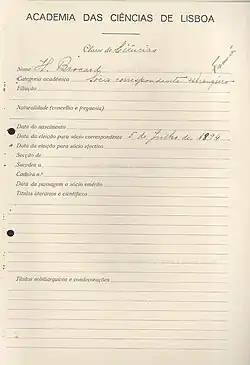 ACADEMIA DAS CIÊNCIAS DE LISBOA
Classe de Sciências
Nome H. Brocard
Categoria académica Sócio correspondente estrangeiro
Filiação
Naturalidade (concelho e freguesia)
Data do nascimento
Data da eleição para sócio correspondente 5 de Julho de 1894
Data da eleição para sócio efectivo
Secção de
Sucedeu a
Cadeira n.º
Data da passagem a sócio emérito
Títulos literários e científicos
Títulos nobiliárquicos e condecorações